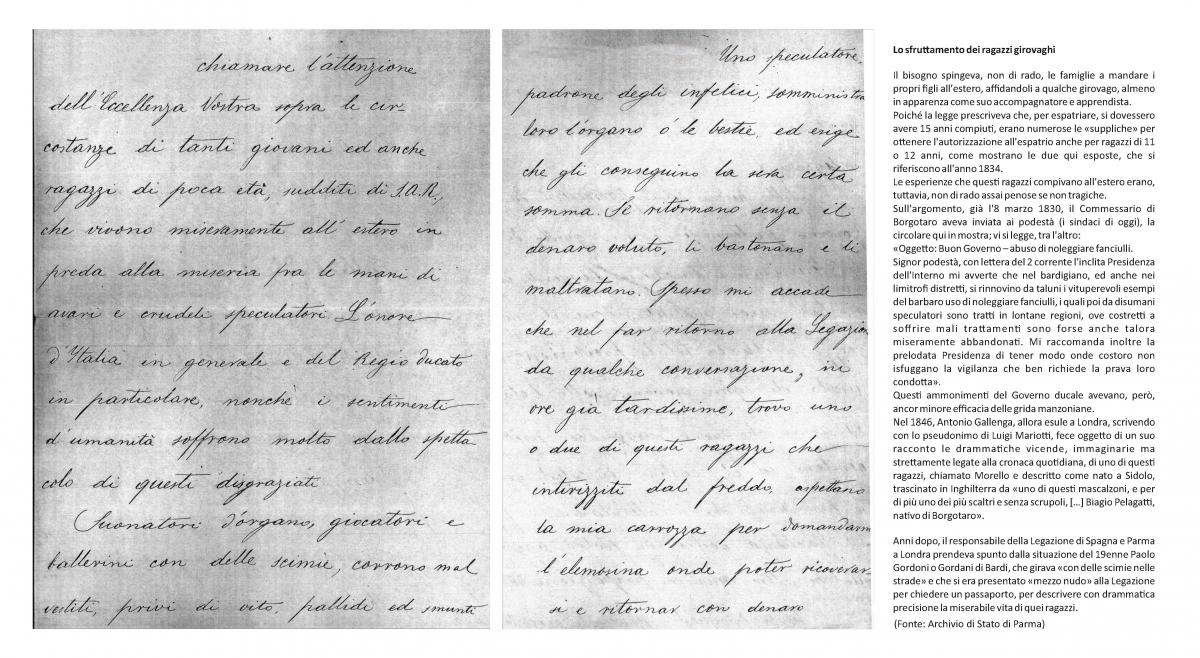 chiamare l'attenzione
dell'Eccellenza Vostra sopra le cir-
costanze di tanti giovani ed anche
ragazzi di poca età, sudditi di S.A.R.,
che vivono miseramente all'estero in
preda alla miseria fra le mani di
avari e crudeli speculatori. L'onore
d'Italia in generale e del Regio ducato
in particolare, nonchè i sentimenti
d'umanità soffrono molto dallo spetta
colo di questi disgraziati
Suonatori d'organo, giocatori e
ballerini con delle scimie, corrono mal
vestiti, privi di vito, pallidi ed smunti
Uno speculatore,
padrone degli infelici, somministra
loro l'organo ò le bestie, ed esige
che gli conseguino la sera certa
somma. Se ritornano senza il
denaro voluto, li bastonano e li
maltratano. Spesso mi accade
che nel far ritorno alla Legazion
da qualche conversazione, in
ore già tardissime, trovo uno
o due di questi ragazzi che
intirizziti dal freddo, aspettano
la mia carrozza per domandarm
l'elemosina onde poter ricoverar
si e ritornar con denaro
Lo sfruttamento dei ragazzi girovaghi
Il bisogno spingeva, non di rado, le famiglie a mandare i
propri figli all'estero, affidandoli a qualche girovago, almeno
in apparenza come suo accompagnatore e apprendista.
Poiché la legge prescriveva che, per espatriare, si dovessero
avere 15 anni compiuti, erano numerose le «suppliche» per
ottenere l'autorizzazione all'espatrio anche per ragazzi di 11
o 12 anni, come mostrano le due qui esposte, che si
riferiscono all'anno 1834.
Le esperienze che questi ragazzi compivano all'estero erano,
tuttavia, non di rado assai penose se non tragiche.
Sull'argomento, già l'8 marzo 1830, il Commessario di
Borgotaro aveva inviata ai podestà (i sindaci di oggi), la
circolare qui in mostra; vi si legge, tra l'altro:
«Oggetto: Buon Governo – abuso di noleggiare fanciulli.
Signor podestà, con lettera del 2 corrente l'inclita Presidenza
dell'Interno mi avverte che nel bardigiano, ed anche nei
limitrofi distretti, si rinnovino da taluni i vituperevoli esempi
del barbaro uso di noleggiare fanciulli, i quali poi da disumani
speculatori sono tratti in lontane regioni, ove costretti a
soffrire mali trattamenti sono forse anche talora
miseramente abbandonati. Mi raccomanda inoltre la
prelodata Presidenza di tener modo onde costoro non
isfuggano la vigilanza che ben richiede la prava loro
condotta».
Questi ammonimenti del Governo ducale avevano, però,
ancor minore efficacia delle grida manzoniane.
Nel 1846, Antonio Gallenga, allora esule a Londra, scrivendo
con lo pseudonimo di Luigi Mariotti, fece oggetto di un suo
racconto le drammatiche vicende, immaginarie ma
strettamente legate alla cronaca quotidiana, di uno di questi
ragazzi, chiamato Morello e descritto come nato a Sidolo,
trascinato in Inghilterra da «uno di questi mascalzoni, e per
di più uno dei più scaltri e senza scrupoli, [...] Biagio Pelagatti,
nativo di Borgotaro».
Anni dopo, il responsabile della Legazione di Spagna e Parma
a Londra prendeva spunto dalla situazione del 19enne Paolo
Gordoni o Gordani di Bardi, che girava «con delle scimie nelle
strade» e che si era presentato «mezzo nudo» alla Legazione
per chiedere un passaporto, per descrivere con drammatica
precisione la miserabile vita di quei ragazzi.
(Fonte: Archivio di Stato di Parma)